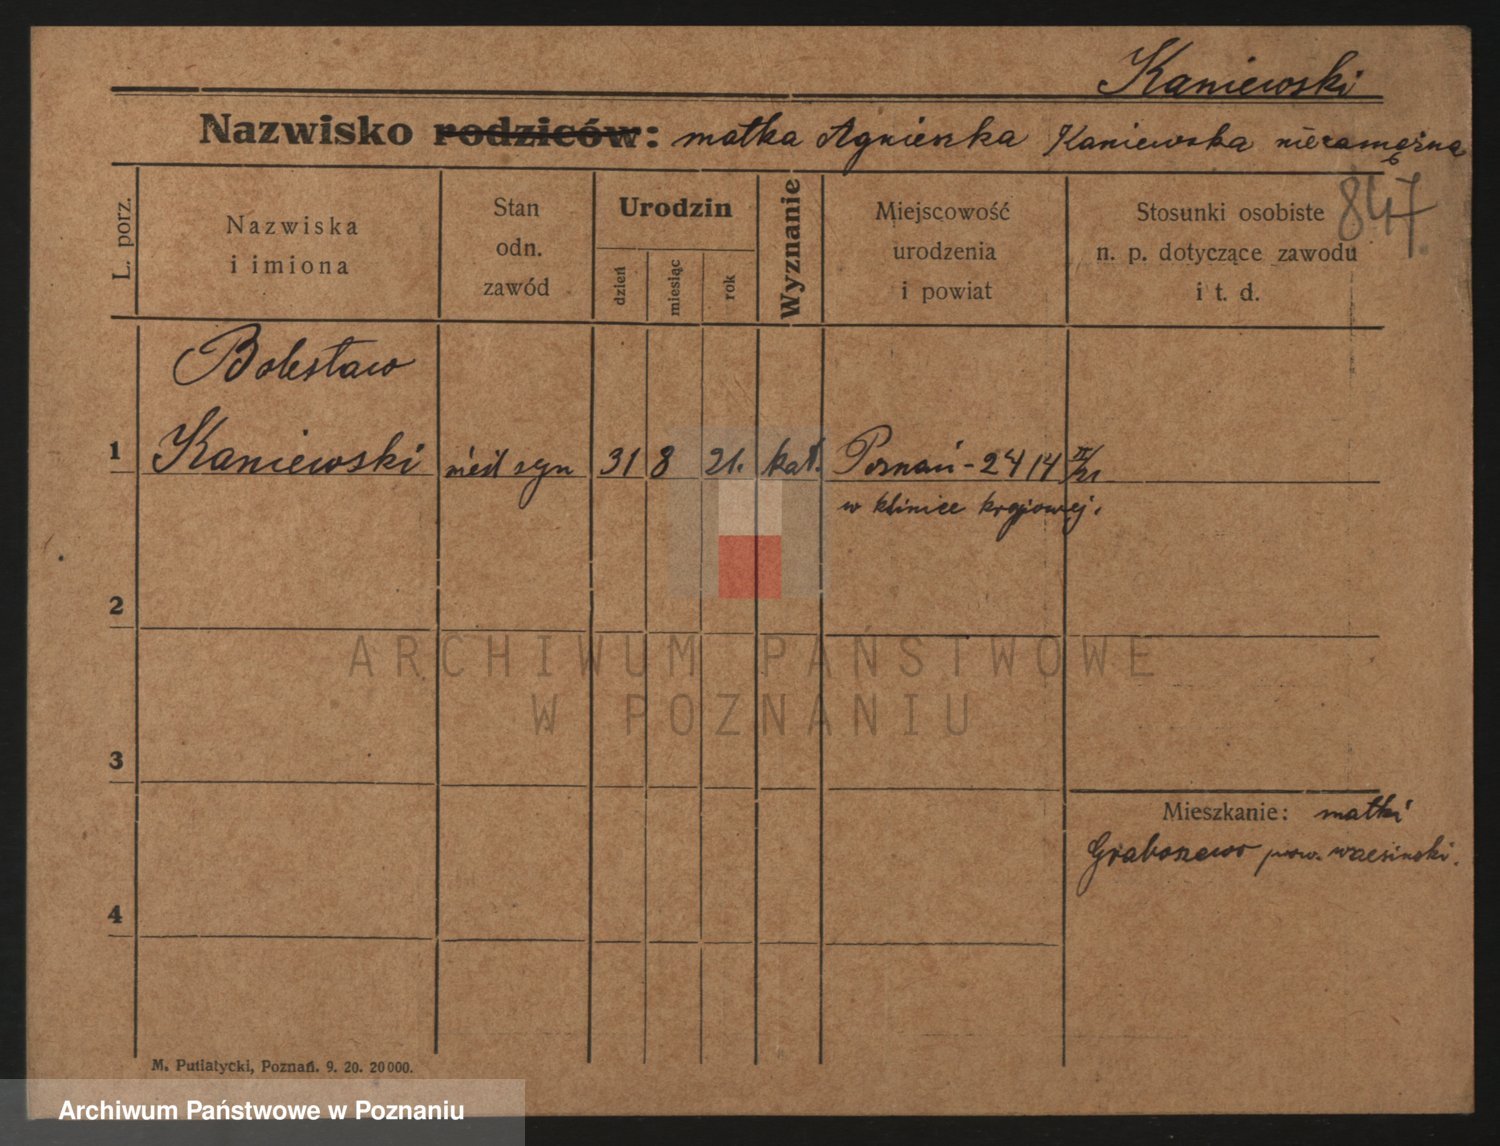 Kaniewski
Nazwisko rodziców: matka Agnieszka Kaniewska niezamężna
847
L. porz.
Nazwiska
i imiona
Stan
odn.
zawód
Urodzin
dzień
miesiąc
rok
Wyznanie
Miejscowość
urodzenia
i powiat
Stosunki osobiste
n. p. dotyczące zawodu
i t. d.
Bolesław
1 Kaniewski syn 31 8 21. kat. Poznań - 2414
w klinice krajowej.
2
3
4
Mieszkanie: matki
Graboszewo pow. wresiński.
M. Putiatycki, Poznań. 9. 20. 20000.
ARCHIWUM PAŃSTWOWE
W POZNANIU
Archiwum Państwowe w Poznaniu